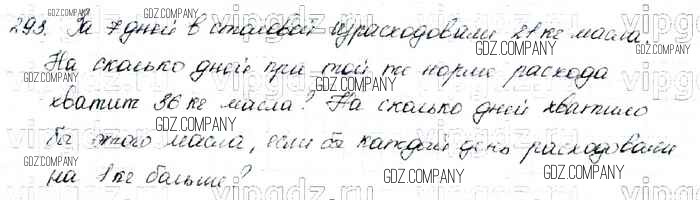 293. За 7 дней в столовой израсходовали 21 кг масла.
На сколько дней при той же норме расхода
хватит 36 кг масла? На сколько дней хватило
бы этого масла, если бы каждый день расходовали
на 1 кг больше?
GDZ.COMPANY
GDZ.COMPANY
GDZ.COMPANY
GDZ.COMPANY
GDZ.COMPANY
GDZ.COMPANY
GDZ.COMPANY
GDZ.COMPANY